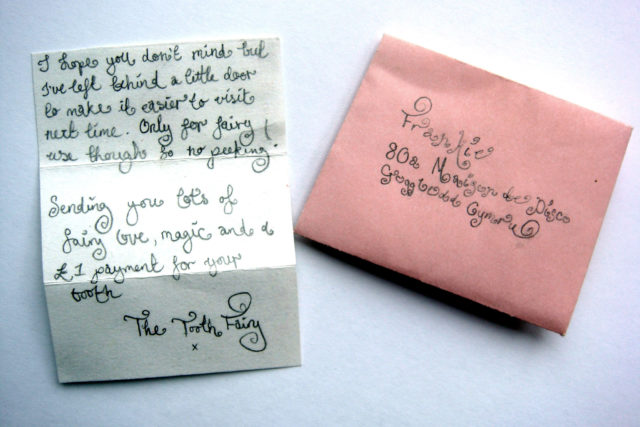 I hope you don't mind but
I've left behind a little door
to make it easier to visit
next time. Only for fairy
use though so no peeking!
Sending you lots of
fairy love, magic and a
£1 payment for your
tooth
The Tooth Fairy
x
Frankie
80a Maison de Disco
Cymru